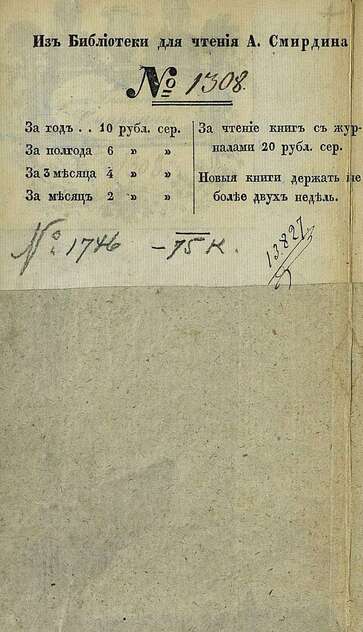 Изъ Библіотеки для чтенія А. Смирдина
№ 1308.
За годъ . . 10 рубл. сер.
За полгода 6 » »
За 3 мѣсяца 4 » »
За мѣсяцъ 2 » »
За чтеніе книгъ съ жур-
налами 20 рубл. сер.
Новыя книги держать не
болѣе двухъ недѣль.
№ 1746 – 75 к.
13.827